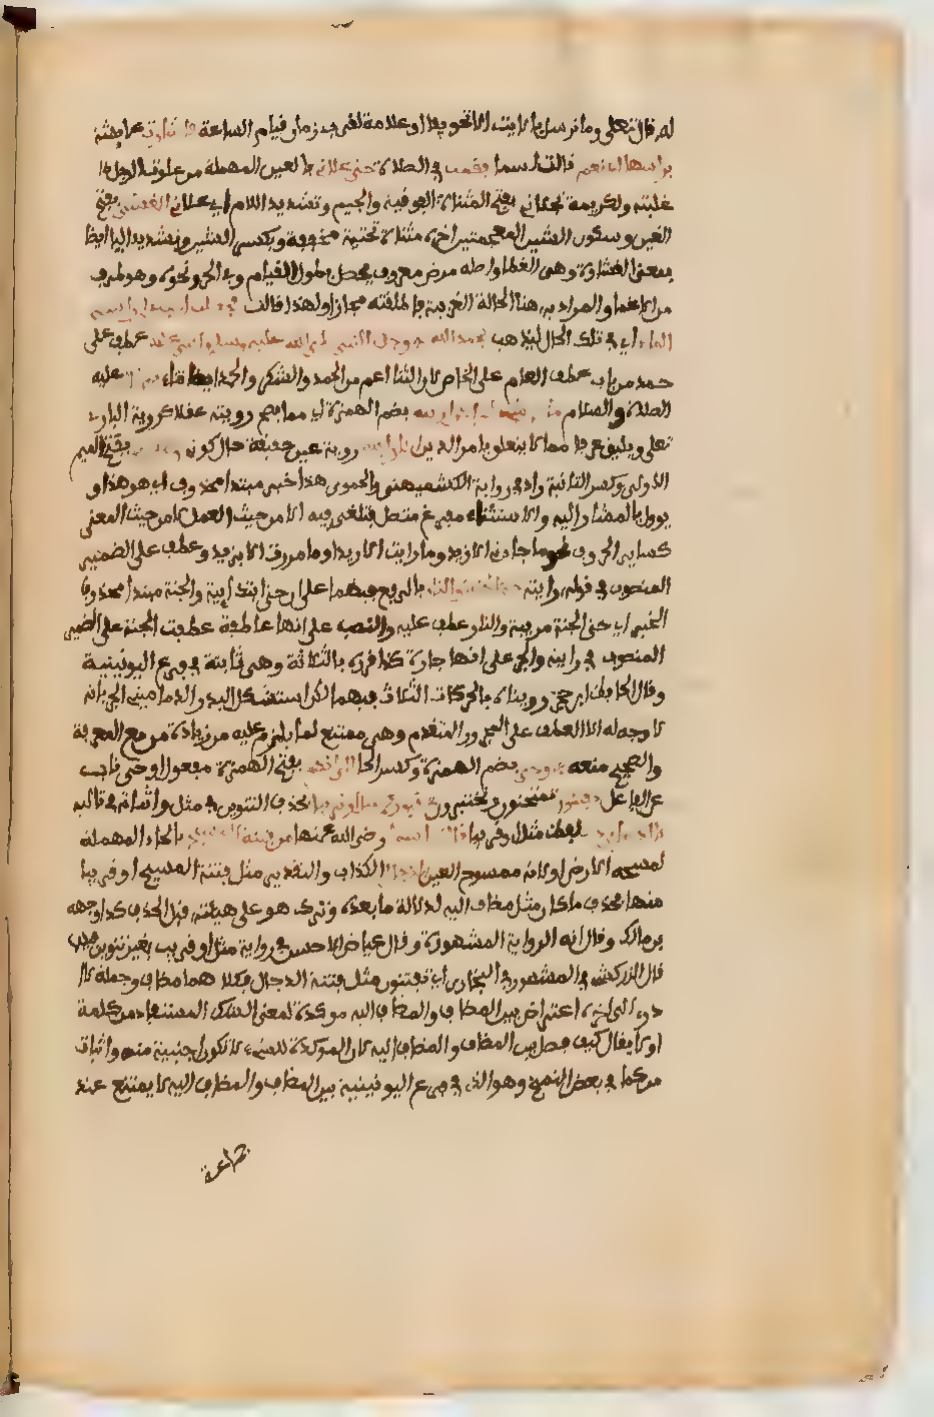 له قال تعلى وما نرسل بالايت الا تخويفا او علامة لقرب زمان قيام الساعة فاشارت عايشة
براسها اي نعم قالت اسما فقمت في الصلاة حتى علاني بالعين المهملة من علوت الرجل اذا
غلبته ولكريمة تجلاني بفتح المثناة الفوفية والجيم وتشديد اللام اي علاني الغشي بفتح
الغين وسكون الشين المعجمتين اخره مثناة تحتية مخففة وبكسر الشين وتشديد اليا ايضا
بمعنى الغشاوة وهى الغطا واصله مرض معروف يحصل بطول القيام وفي الحر ونحوه وهو طرف
من الاغما والمراد به هنا الحالة القريبة فاطلقته مجازا ولهذا قالت فجعلت اصب على راسي
الماء اي في تلك الحال ليذهب فحمد الله عز وجل النبي صلى الله عليه وسلم واثنى عليه عطف على
حمد من باب عطف العام على الخاص لان الثنا اعم من الحمد والشكر والحمد ايضا ثم قال عليه
الصلاة والسلام ما من شيء لم اكن اريته بضم الهمزة اي مما يصح رويته عقلا كروية البارئ
تعلى ويليق عرفا مما لا يتعلق بامر الدين الا رايته روية عين حقيقة حال كونه في مقامي بفتح الميم
الاولى وكسر الثانية زاد في رواية الكشميهنى والحموى هذا خبر مبتدا محذوف اي هو هذا و
يوول بالمشار اليه والاستثناء مفرغ متصل فتلغى فيه الا من حيث العمل لا من حيث المعنى
كساير الحروف نحو ما جاءنى الا زيد وما رايت الا زيدا وما مررت الا بزيد وعطف على الضمير
المنصوب في قوله رايته حتى الجنة والنار بالرفع فيهما على ان حتى ابتداءية والجنة مبتدا محذوف
الخبر اي حتى الجنة مرئية والنار عطف عليه والنصب على انها عاطفة عطفت الجنة على الضمير
المنصوب في رايته والجر على انها جارة كذا قرره بالثلاثة وهى ثابتة في فرع اليونينية
وقال الحافظ ابن حجر رويناه بالحركات الثلاث فيهما لكن استشكل البدر الدمامينى الجر بانه
لا وجه له الا العطف على المجرور المتقدم وهى ممتنع لما يلزم عليه من زيادة من مع المعرفة
والصحيح منعه فاوحي بضم الهمزة وكسر الحا الي انكم بفتح الهمزة مفعول اوحى نايب
عن الفاعل تفتنون تمتحنون وتختبرون في قبوركم مثل او قريبا بحذف التنوين في مثل واثباته في تاليه
لا ادري اي لفظ مثل او قريبا قالت اسما رضى الله عنها من فتنة المسيح بالحاء المهملة
لمسحه الارض او لانه ممسوح العين الدجال الكذاب والتقدير مثل فتنة المسيح او قريبا
منها فحذف ما كان مثل مضاف اليه لدلالة ما بعده وترك هو على هيئته قبل الحذف كذا وجهه
بن مالك وقال انه الرواية المشهورة وقال عياض الاحسن في رواية مثل او قريب بغير تنوين فيهما
قال الزركشى في المشهور في البخارى اي تفتنون مثل فتنة الدجال فكلا هما مضاف وجملة لا
درى الى اخره اعتراض بين المضاف والمضاف اليه موكدة لمعنى الشك المستفاد من كلمة
او لا يقال كيف فصل بين المضاف والمضاف اليه لان الموكدة للشيء لا تكون اجنبية منه واثبات
من كما في بعض النسخ وهو الذى في فرع اليونينية بين المضاف والمضاف اليه لا يمتنع عند
جماعة